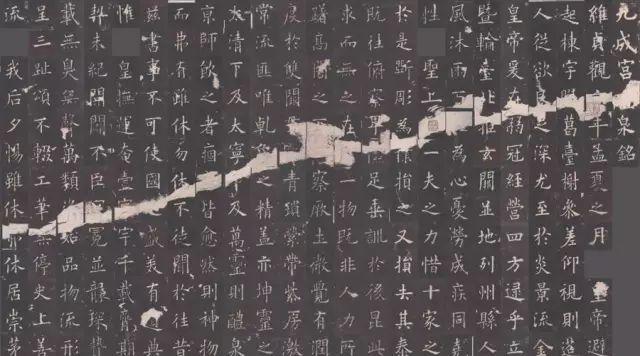 九成宮泉銘
維貞觀年孟夏之月皇帝避
起棟宇膠葛臺榭參差仰視則
人從欲良之深尤至於炎景流金
皇帝爰在弱冠經營四方逮乎立
暨輪臺北拒玄關並地列州縣人
風沐雨百為心憂勞成疾同
性聖上一夫之力惜十家之
於是斲彫為樸損之又損去其泰
既往俯察卑足垂訓於後昆此
求而無之在一物既非人力所
躊高閣之下察厥土微覺有潤
度於雙闕青瑣縈帶紫房激
常流匪唯乾之精蓋亦坤靈之
太清下及太寧及萬靈則醴泉
京師飲之者痼皆愈然則神物
而弗有雖休勿休不徒聞於往昔
茲書事不可使國盛美有典
惟皇撫運奄宇千載膺期
契未紀開闢不臣冠冕並襲琛贄
載無臭無聲萬類資始品物流形
呈二祉頌不輟工筆無停史上善
流我后夕惕雖休弗休居崇茅